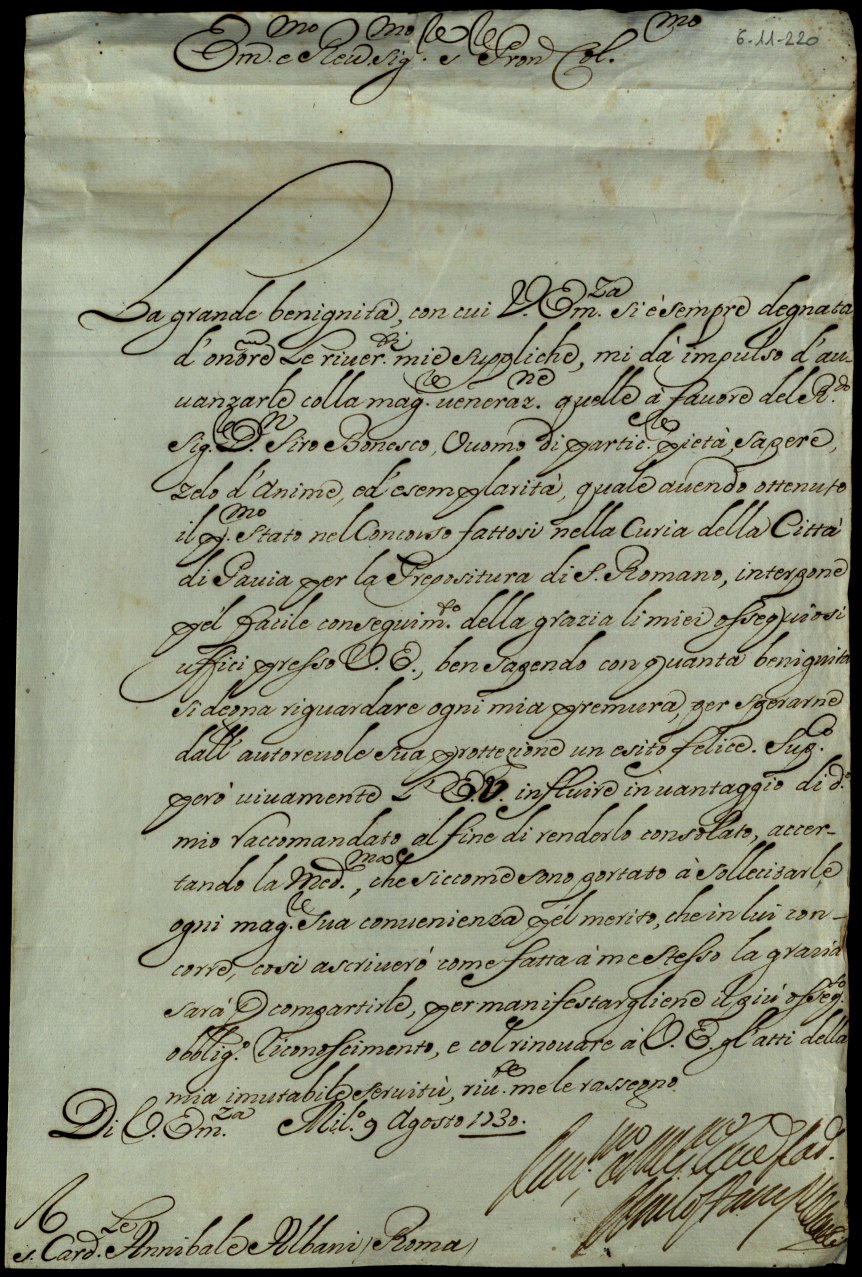 6-11-220
Em.mo e Reu.mo Sig.re e Pron Col.mo
La grande benignità, con cui V. Em.za si è sempre degnata
d'onore le riuer.di mie suppliche, mi dà impulso d'au-
uanzarle colla mag.re ueneraz.ne quelle à fauore del R.do
Sig.re D.n Siro Bonesco, Vuomo di partic.re pietà, sapere,
zelo d'Anime, ed'esemplarità, quale auendo ottenuto
il p.mo Stato nel Concorso fattosi nella Curia della Città
di Pauia per la Prepositura di S. Romano, interpone
pél facile conseguim.to della grazia li miei ossequiosi
uffici presso V. E., ben sapendo con quanta benignità
si degna riguardare ogni mia premura, per sperarne
dall'autoreuole sua prottezione un esito felice. Sup.o
però viuamente l'E.V. influire in vantaggio di d.o
mio raccomandato al fine di renderlo consolato, accer-
tando la Med.ma, che siccome sono portato à sollecitarle
ogni mag.re sua conuenienza pél merito, che in lui con-
corre, cosi ascriuerò come fatta à me stesso la grazia
sarà p compartirle, per manifestargliene il più osseq.to
obblig.o riconoscimento, e col rinouare à V. E. gl'atti della
mia imutabile seruitù, riu.te me le rassegno.
Di V. Em.za Mil.o 9 Agosto 1730.
S. Card.le Annibale Albani (Roma)